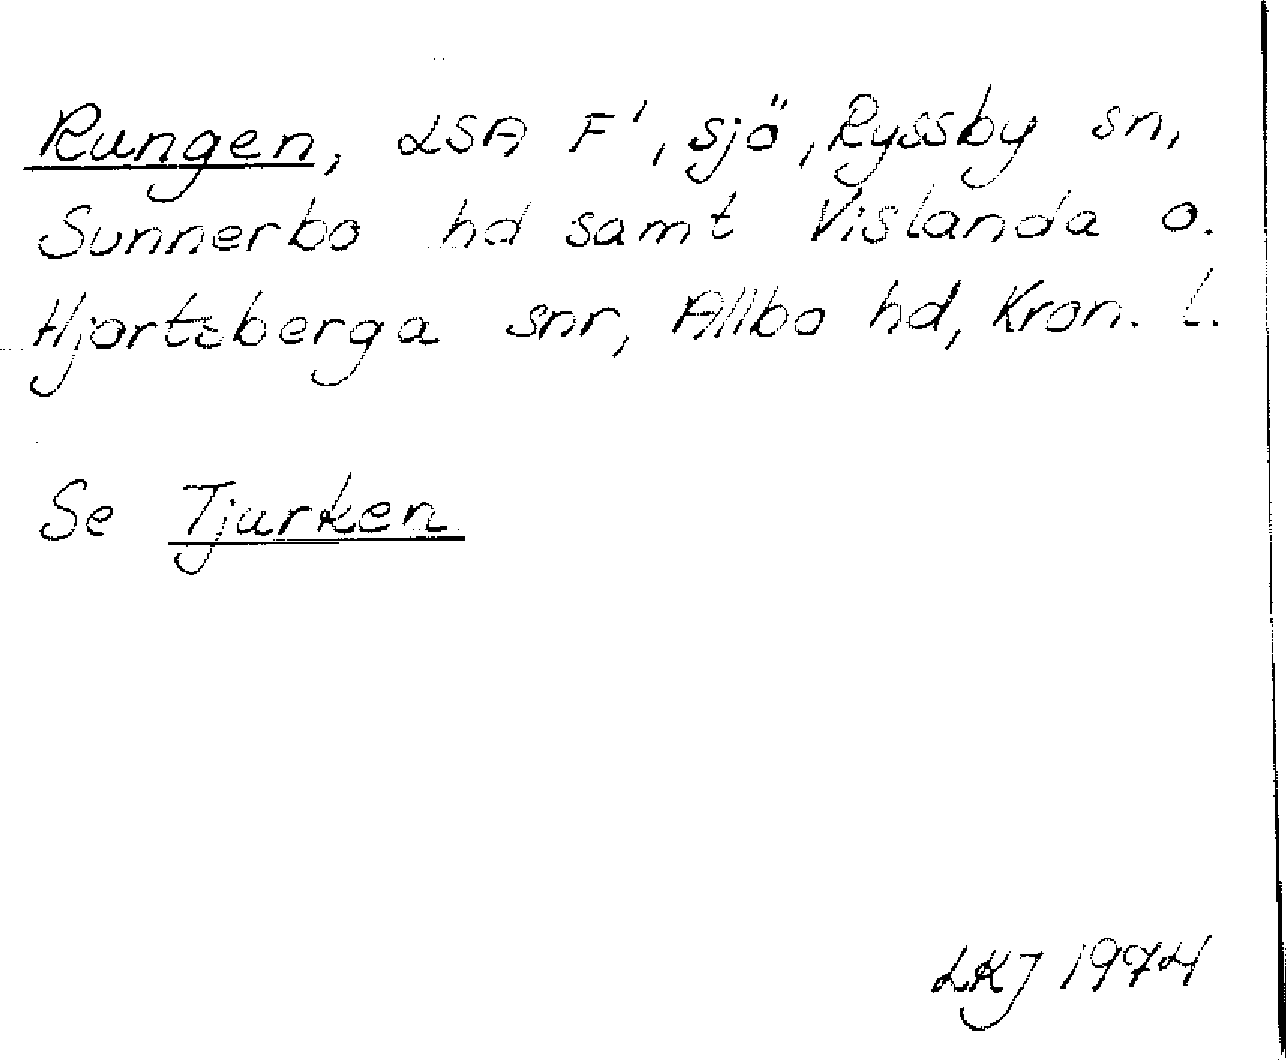 Rungen, LSA F', sjö, Ryssby sn,
Sunnerbo hd samt Vislanda o.
Hjortsberga snr, Allbo hd, Kron. l.
Se Tjurken
LKJ 1974